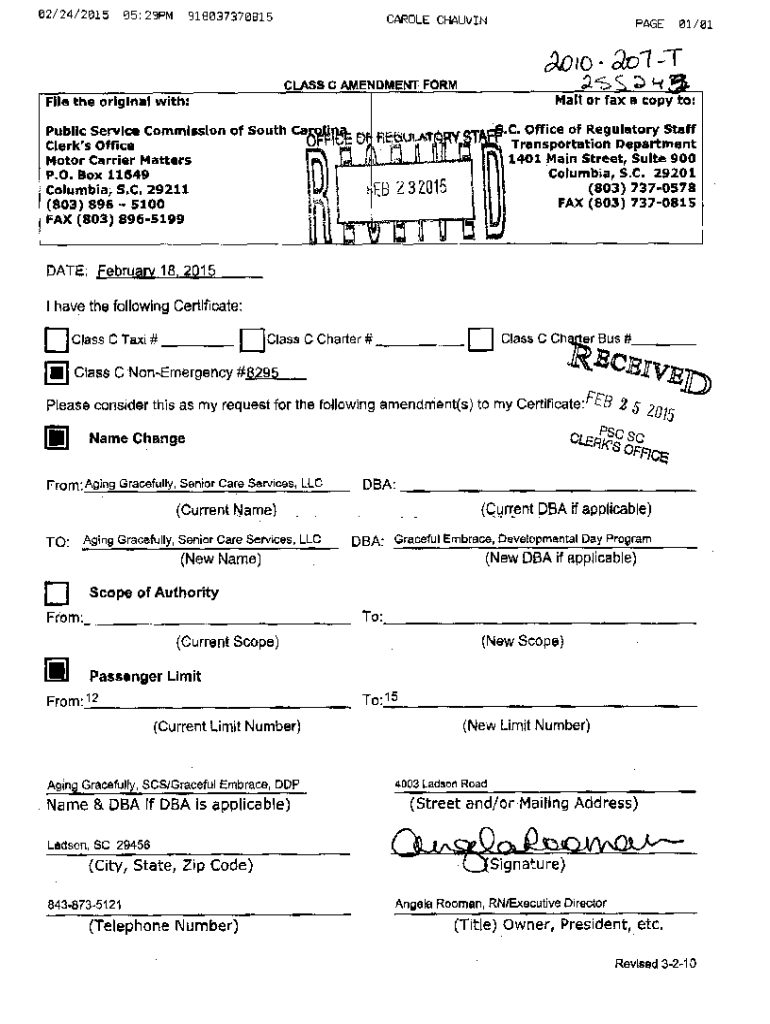 02/24/2015 05:29PM 918037370815 CAROLE CHAUVIN PAGE 01/01
2010-207-T
CLASS C AMENDMENT FORM
File the original with: Mail or fax a copy to:
Public Service Commission of South Carolina S.C. Office of Regulatory Staff
Clerk's Office Transportation Department
Motor Carrier Matters 1401 Main Street, Suite 900
P.O. Box 11649 Columbia, S.C. 29201
Columbia, S.C. 29211 (803) 737-0578
(803) 896 - 5100 FAX (803) 737-0815
FAX (803) 896-5199
OFFICE OF REGULATORY STAFF
FEB 23 2015
DATE: February 18, 2015
I have the following Certificate:
Class C Taxi # Class C Charter # Class C Charter Bus #
Class C Non-Emergency #8295
RECEIVED
Please consider this as my request for the following amendment(s) to my Certificate:
FEB 25 2015
PSC SC
CLERK'S OFFICE
Name Change
From: Aging Gracefully, Senior Care Services, LLC DBA:
(Current Name) (Current DBA if applicable)
TO: Aging Gracefully, Senior Care Services, LLC DBA: Graceful Embrace, Developmental Day Program
(New Name) (New DBA if applicable)
Scope of Authority
From: To:
(Current Scope) (New Scope)
Passenger Limit
From: 12 To: 15
(Current Limit Number) (New Limit Number)
Aging Gracefully, SCS/Graceful Embrace, DDP 4003 Ladson Road
Name & DBA if DBA is applicable) (Street and/or Mailing Address)
Ladson, SC 29456 Angela Rooman
(City, State, Zip Code) (Signature)
843-873-5121 Angela Rooman, RN/Executive Director
(Telephone Number) (Title) Owner, President, etc.
Revised 3-2-10